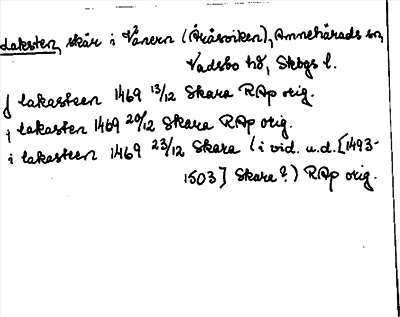 Laksten, skär i Vänern (Åråsviken), Amnehärads sn,
Vadsbo hd, Skbgs l.
j lakasteen 1469 13/12 Skara RAp orig.
j lakasten 1469 20/12 Skara RAp orig.
i lakasteen 1469 23/12 Skara (i vid. u.d. [1493-
1503] Skara?) RAp orig.